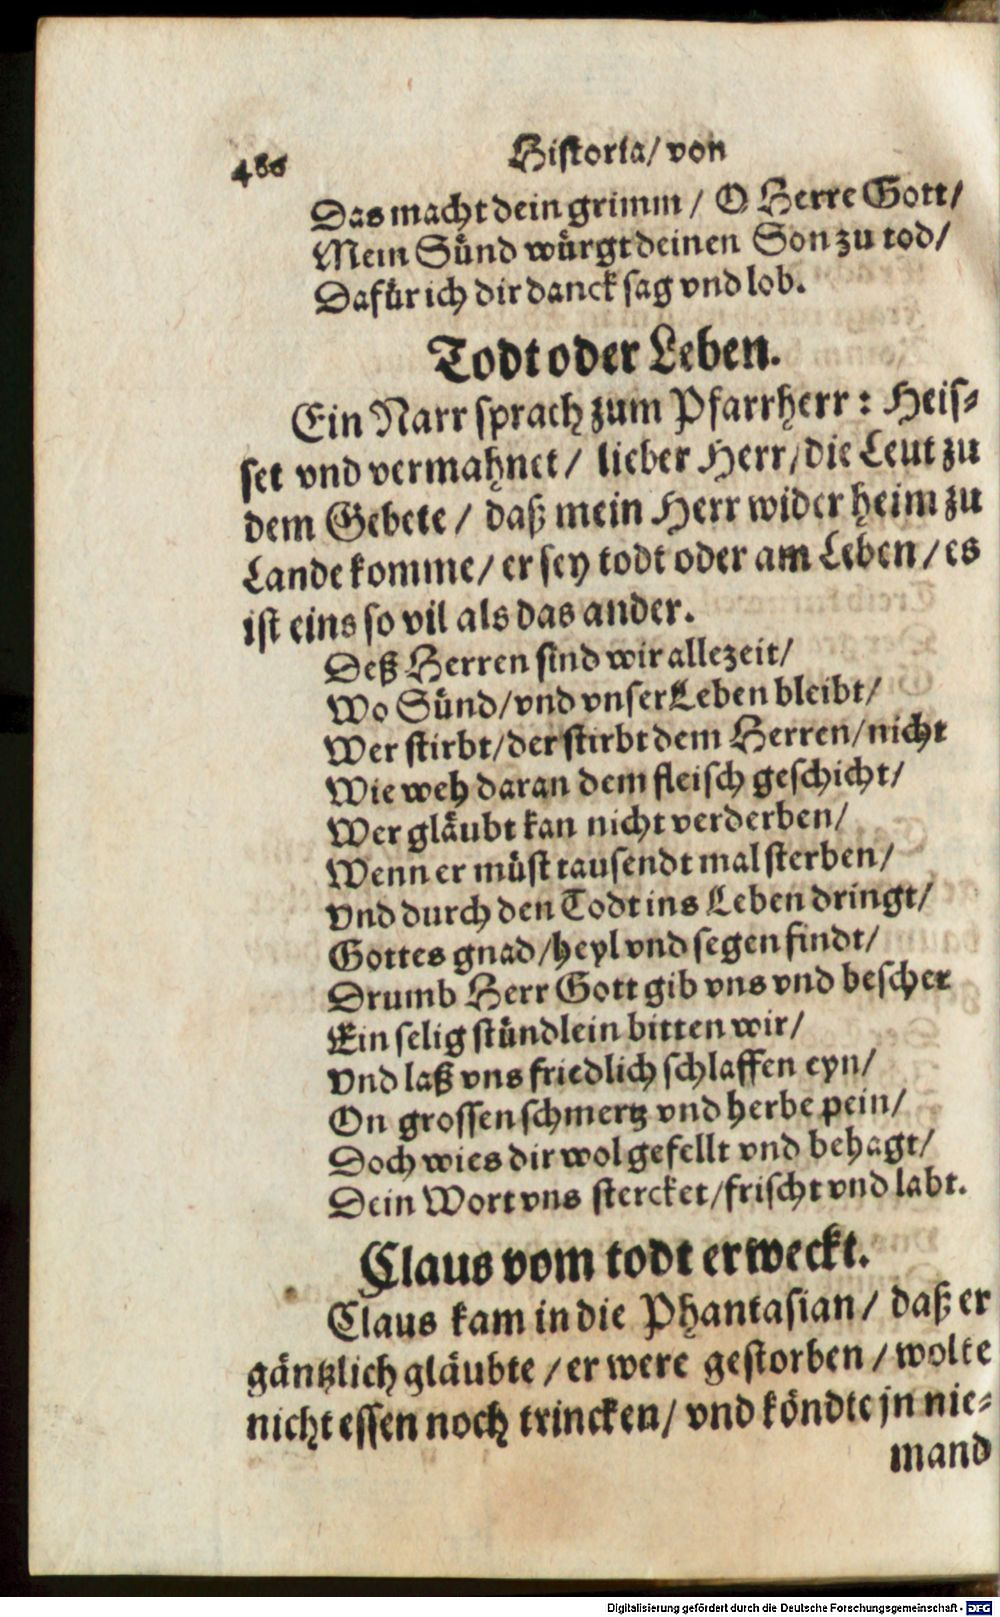 486 Historia/ von
Das macht dein grimm / O Herre Gott/
Mein Sünd würgt deinen Son zu tod/
Dafür ich dir danck sag vnd lob.
Todt oder Leben.
Ein Narr sprach zum Pfarrherr : Heis-
set vnd vermahnet / lieber Herr/ die Leut zu
dem Gebete / daß mein Herr wider heim zu
Lande komme/ er sey todt oder am Leben/ es
ist eins so vil als das ander.
Deß Herren sind wir allezeit/
Wo Sünd/ vnd vnser Leben bleibt/
Wer stirbt/ der stirbt dem Herren/ nicht
Wie weh daran dem fleisch geschicht/
Wer gläubt kan nicht verderben/
Wenn er müst tausendt mal sterben/
Vnd durch den Todt ins Leben dringt/
Gottes gnad/ heyl vnd segen findt/
Drumb Herr Gott gib vns vnd bescher
Ein selig stündlein bitten wir/
Vnd laß vns friedlich schlaffen eyn/
On grossen schmertz vnd herbe pein/
Doch wies dir wol gefellt vnd behagt/
Dein Wort vns stercket/ frischt vnd labt.
Claus vom todt erweckt.
Claus kam in die Phantasian/ daß er
gäntzlich gläubte / er were gestorben / wolte
nicht essen noch trincken/ vnd köndte jn nie-
mand
Digitalisierung gefördert durch die Deutsche Forschungsgemeinschaft - DFG